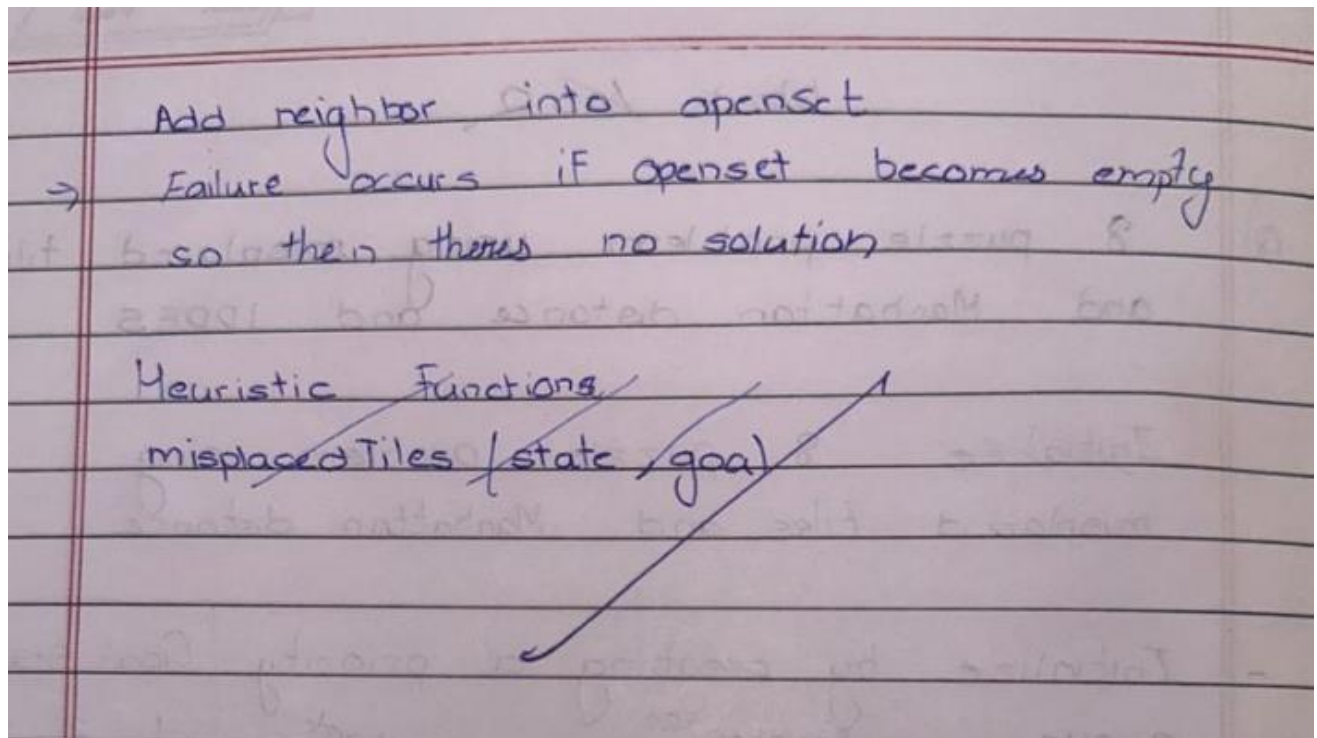 Add neighbor into openset
⇒ Failure occurs if openset becomes empty
so then theres no solution
Heuristic Functions
misplacedTiles (state, goal)